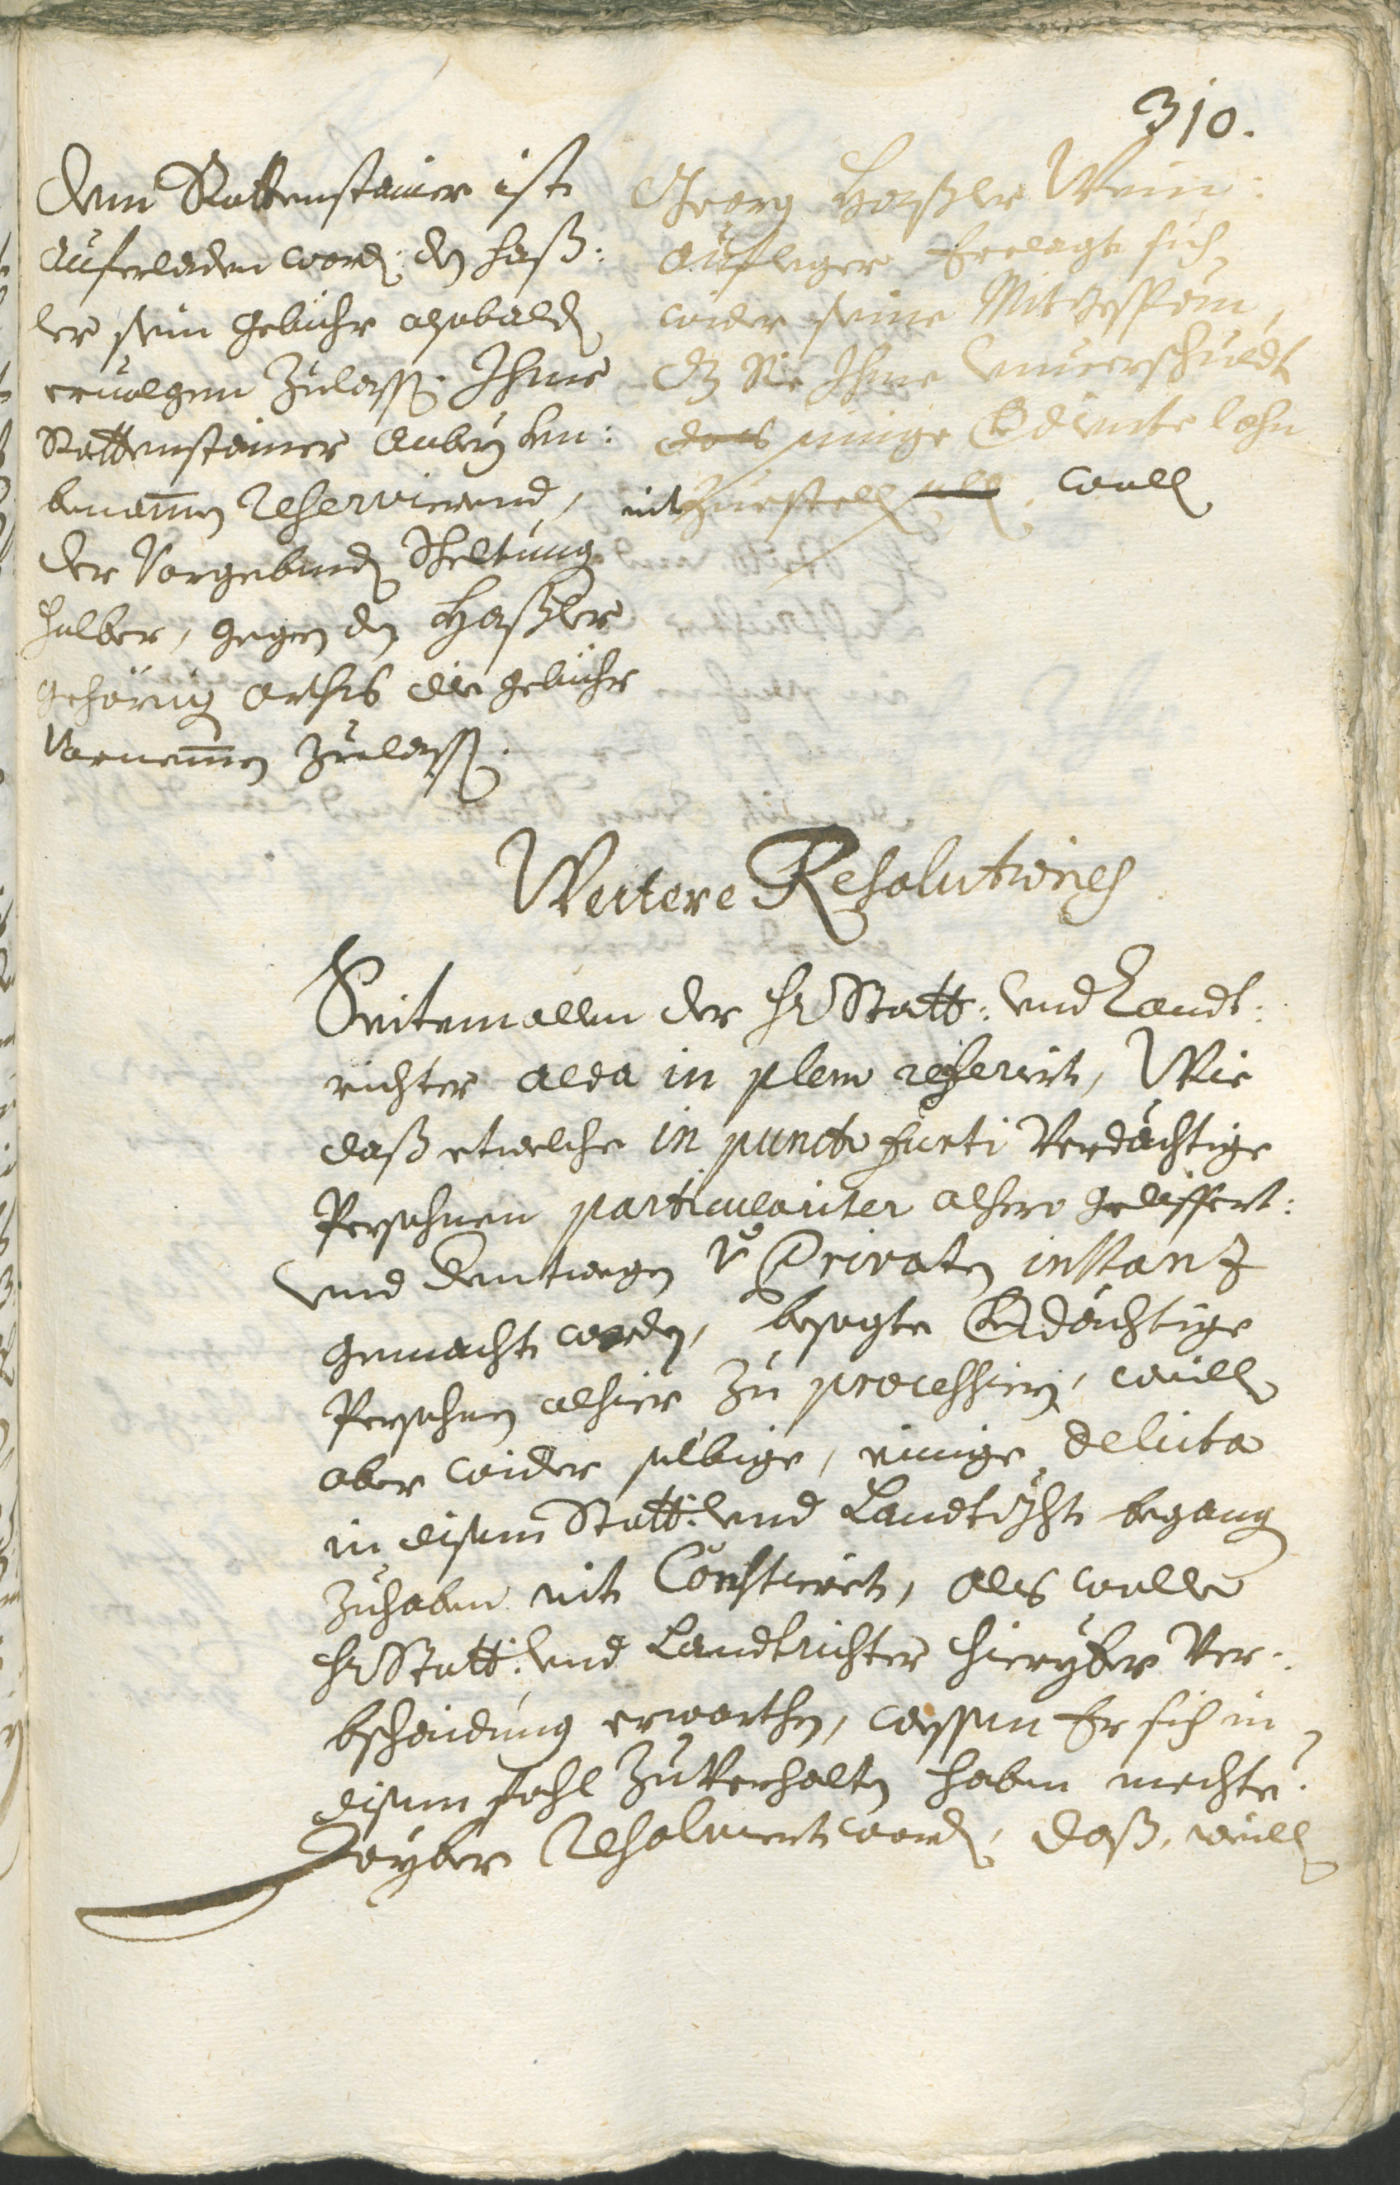 310.
Dem Rottenstainer ist
auferladen word: dz Haß:
ler sein gebühr alsobald
eruolgen zulass. Ihme
Rottenstainer anbey
benammen reservierend,
der Vorgebend Scheltung
halber, gegen dz Haßler
gehörig orths die gebühr
Vornemmen zulass.
Georg Haßler Wein:
aufleger beclagt sich
wider seine Mit
dz Sie Ihme vnuerschuldt
das einige verdiente lohn
nit zuestell woll
Weitere Resolutiones
Seitemallen der Hr Statt: vnd Landt:
richter alda in pleno referirt, Wie
daß etwelche in puncto furti Verdächtige
Persohnen particulariter alhero geliffert:
vnd dentwegen Privaten instanz
gemacht worden, besagte Verdächtige
Persohnen alhier zu processiern, weill
aber wider selbige, einige delicta
in disem Statt: vnd Landtgricht begang
zuhaben nit Constiert, als wolle
Hr Statt: vnd Landtrichter hieryber Ver:
bschaidung erwarthen, wessen Er sich in
disem fahl zuverhalten haben mechte?
Daryber resolviert word, daß, weill